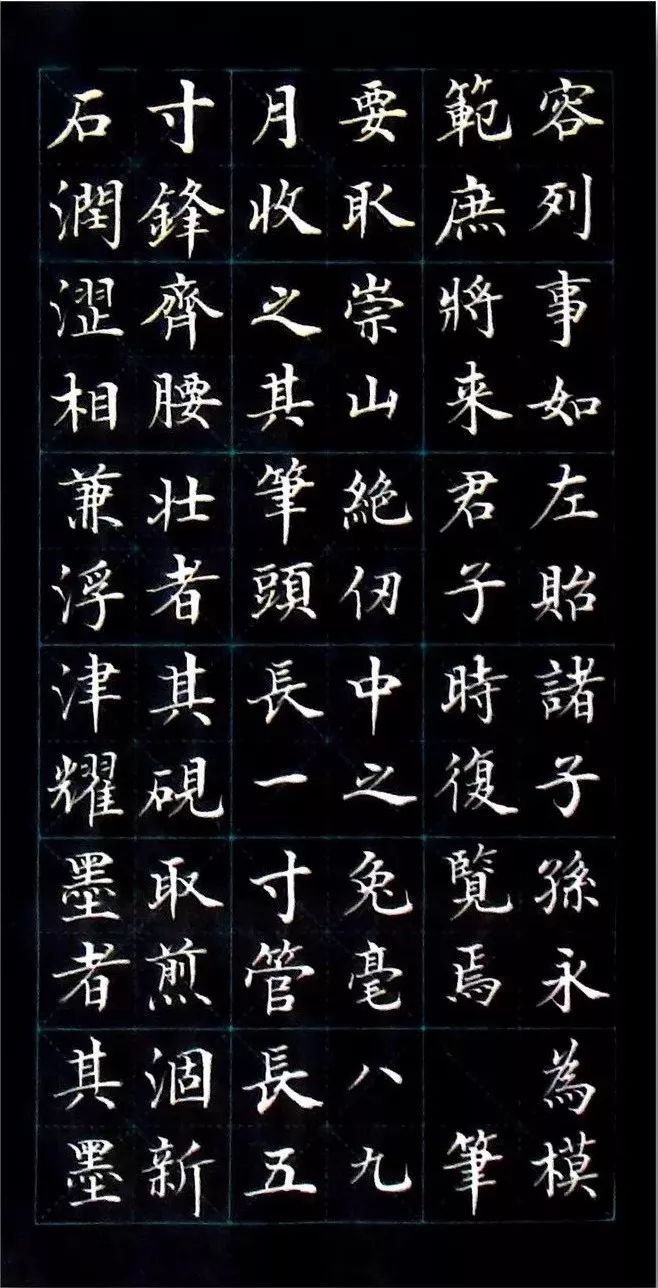 容列事如左貽諸子孫永為模
範庶將来君子時復覽焉 筆
要取崇山絶仞中之兔毫八九
月收之其筆頭長一寸管長五
寸鋒齊腰壯者其硯取煎涸新
石潤澀相兼浮津耀墨者其墨